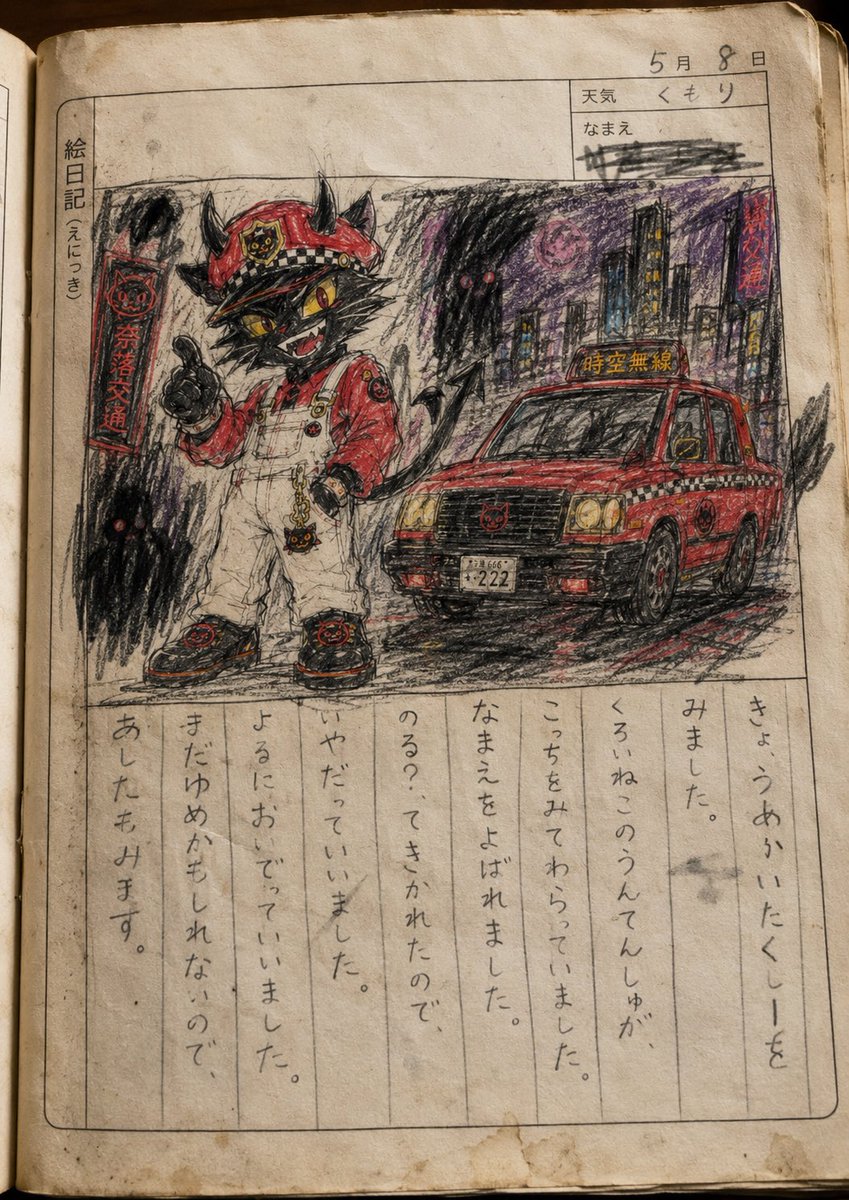 5月8日
天気 くもり
なまえ
絵日記(えにっき)
奈落交通
交通
時空無線
666
・222
きょ、うめかいたくしーを
みました。
くろいねこのうんてんしゅが、
こっちをみてわらっていました。
なまえをよばれました。
のる?、てきかれたので、
いやだっていいました。
よるにおいでっていいました。
まだゆめかもしれないので、
あしたもみます。